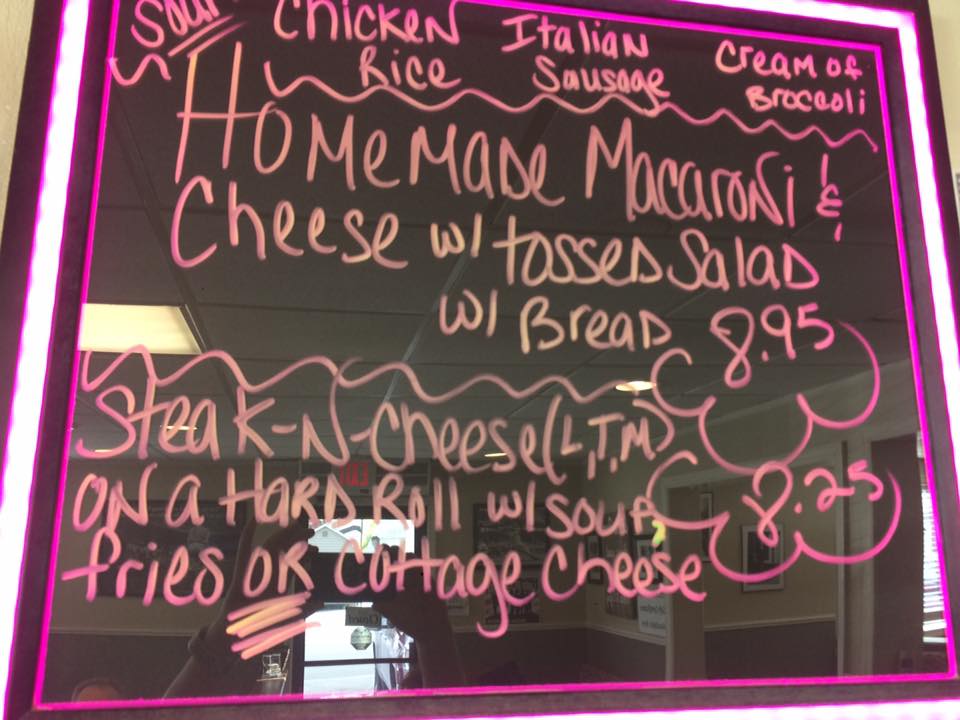 Soup Chicken Italian Cream of
Rice Sausage Broccoli
Homemade Macaroni &
Cheese w/ tossed Salad
w/ Bread 8.95
Steak-N-Cheese (L,T,M)
on a Hard Roll w/ soup, 8.25
fries or cottage cheese
EXIT